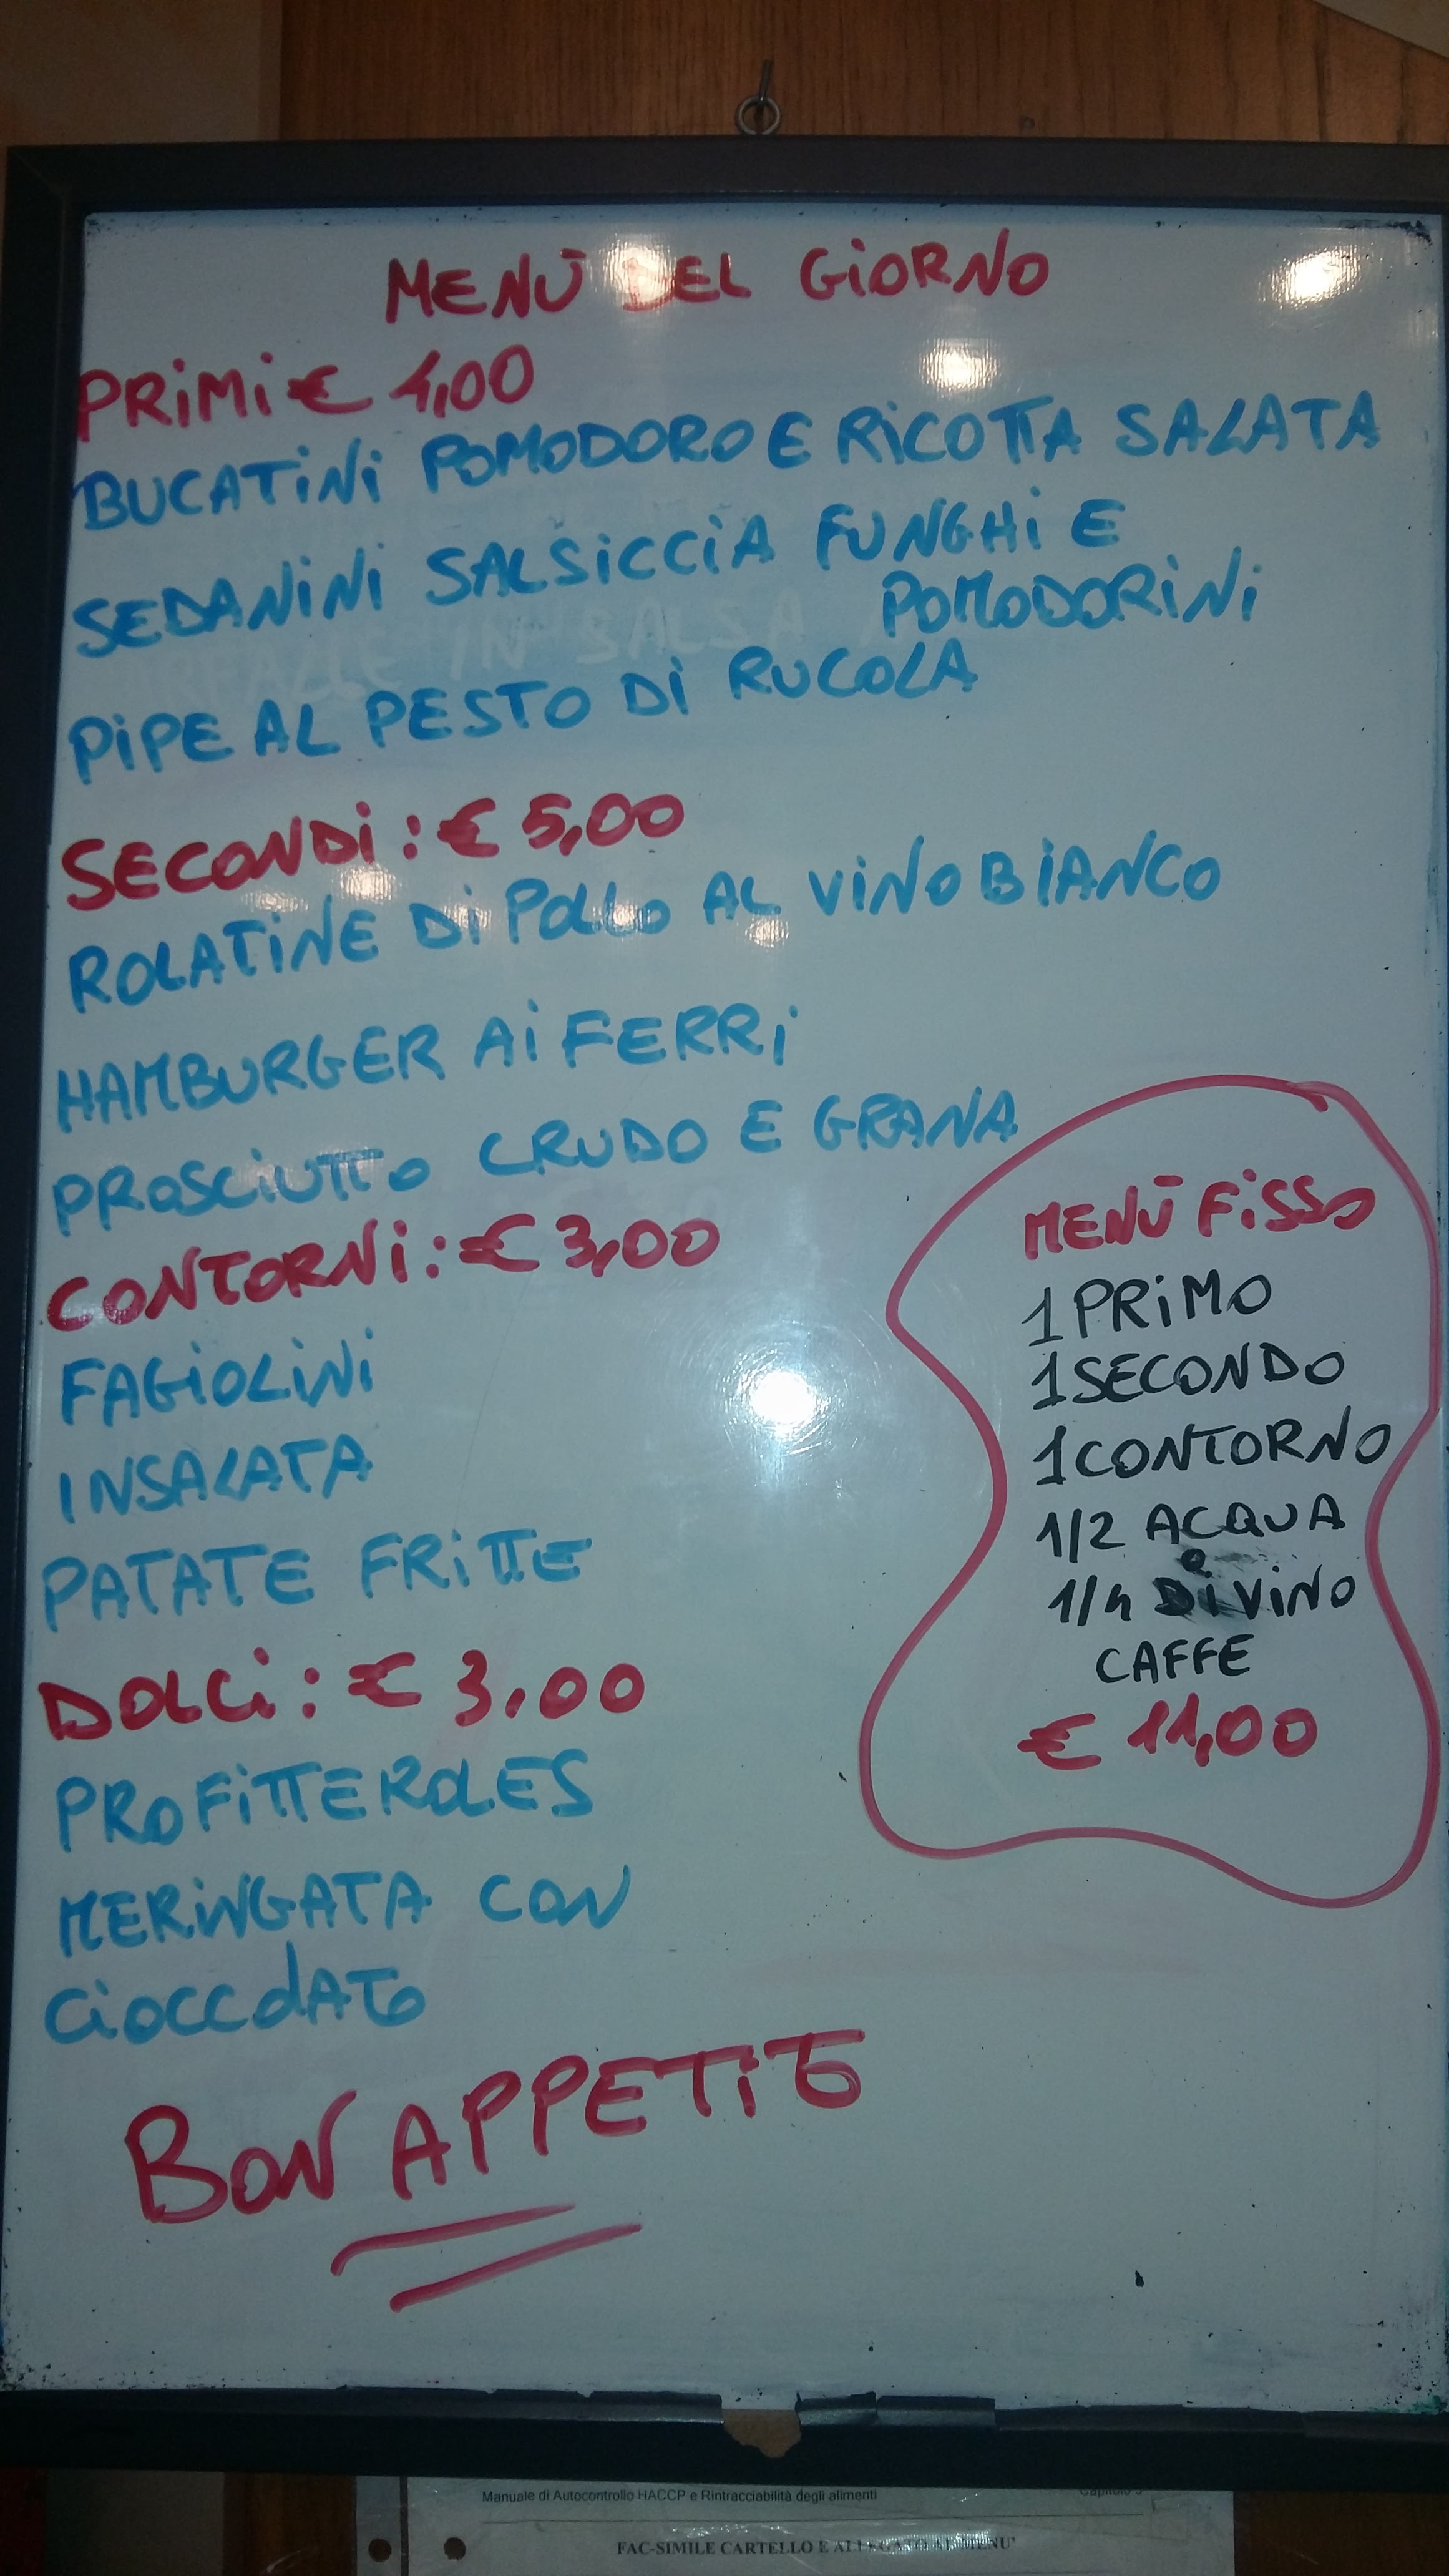 MENÙ DEL GIORNO
PRIMI € 4,00
BUCATINI POMODORO E RICOTTA SALATA
SEDANINI SALSICCIA FUNGHI E
POMODORINI
PIPE AL PESTO DI RUCOLA
SECONDI: € 5,00
ROLATINE DI POLLO AL VINO BIANCO
HAMBURGER AI FERRI
PROSCIUTTO CRUDO E GRANA
CONTORNI: € 3,00
FAGIOLINI
INSALATA
PATATE FRITTE
DOLCI: € 3,00
PROFITTEROLES
MERINGATA CON
CIOCCOLATO
BON APPETITO
MENÙ FISSO
1 PRIMO
1 SECONDO
1 CONTORNO
1/2 ACQUA
O
1/4 DI VINO
CAFFE
€ 11,00
Manuale di Autocontrollo HACCP e Rintracciabilità degli alimenti
FAC-SIMILE CARTELLO E ALLEGATO AL MENU'